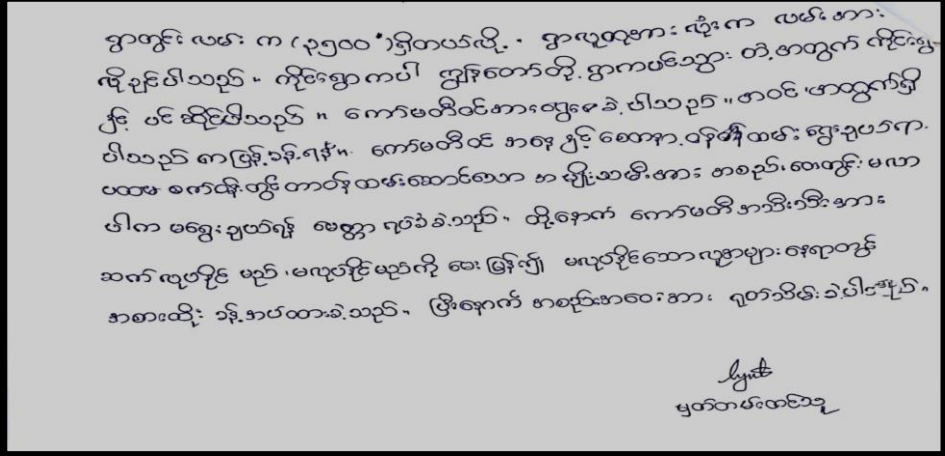 ရွာတွင်း လမ်း က (၃၅၀၀')ရှိတယ်လို့. ရွာလူထုအား လုံးက လမ်းအား
လိုချင်ပါသည်။ ကိုင်းရွာကပါ ကျွန်တော်တို့ ရွာကပင်သွား တဲ့အတွက် ကိုင်းရွာ
နှင့် ပင် ဆိုင်ပါသည်။ ကော်မတီဝင်အား ရွေး ခဲ့ပါသည်။ အဝင် အထွက်ရှိ
ပါသည် ကာပြန့်ခန့်ရန်။ ကော်မတီဝင် အနေ နှင့် စေတနာ့ဝန်ထမ်း ရွေးချယ်ရာ
ပထမ စက်ထိန်းတွင် တာဝန်ထမ်းဆောင်သော အမျိုးသမီးအား အစည်းဝေးတွင် မလာ
ပါက မရွေးချယ်ရန် မေတ္တာ ရပ်ခံခဲ့သည်။ ထို့နောက် ကော်မတီအသီးသီးအား
ဆက်လုပ်နိုင် မည် ၊မလုပ်နိုင်မည်ကို မေးမြန်း၍ မလုပ်နိုင်သောလူများနေရာတွင်
အစားထိုး ခန့်အပ်ထားခဲ့သည်။ ပြီးနောက် အစည်းအဝေးအား ရုတ်သိမ်းခဲ့ပါသည်။
မှတ်တမ်းတင်သူ